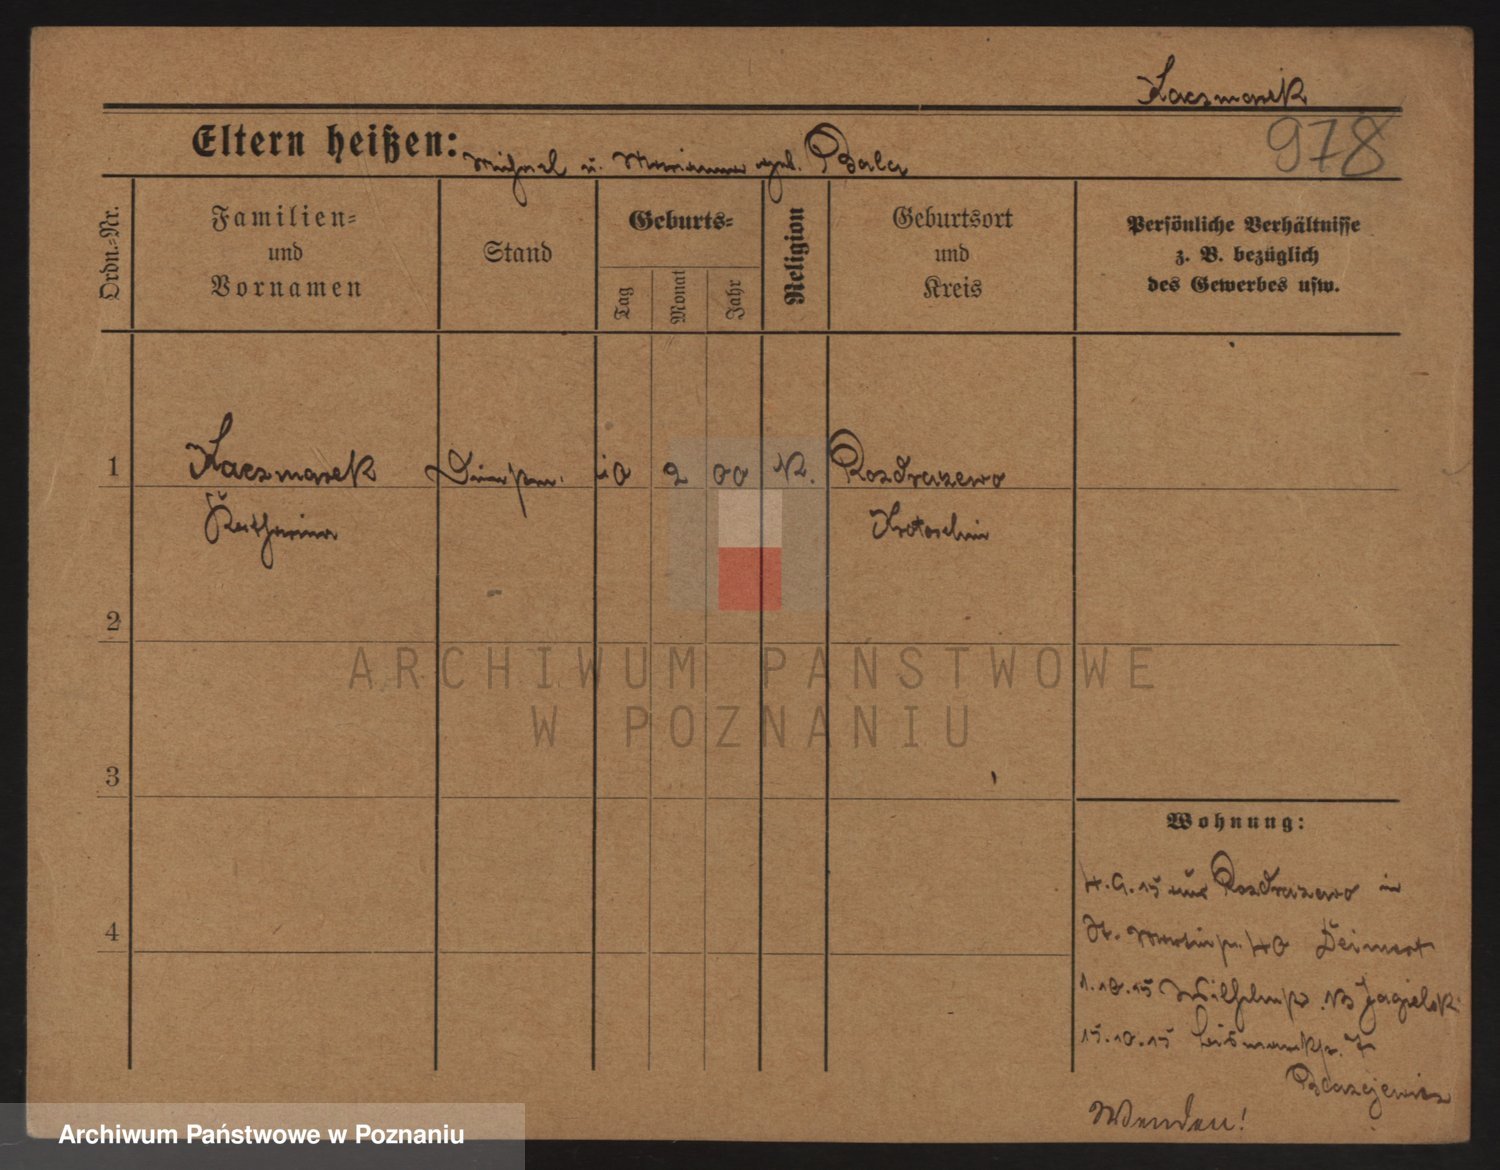 Kaczmarek
978
Eltern heißen: Michael u. Marianna geb. Bala
Ordn.=Nr.
Familien=
und
Vornamen
Stand
Geburts=
Tag
Monat
Jahr
Religion
Geburtsort
und
Kreis
Persönliche Verhältnisse
z. B. bezüglich
des Gewerbes usw.
1 Kaczmarek 10 2 00 K. Rozdrazewo
Katharina Krotoschin
2
3
4
ARCHIWUM PAŃSTWOWE
W POZNANIU
Wohnung:
4.9.15 aus Rozdrazewo in
St. Martinstr. 40
1.10.15 Wilhelmstr. 13 Jagielski
15.10.15 Bismarckstr. 7
Blazejewicz
Wenden!
Archiwum Państwowe w Poznaniu